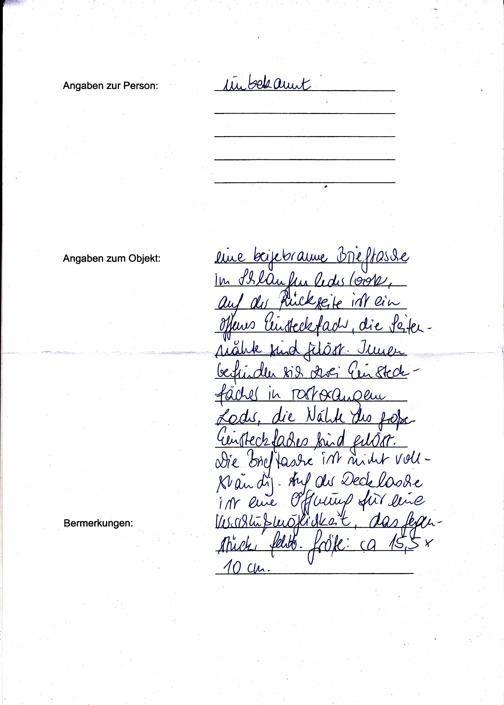 Angaben zur Person: unbekannt
Angaben zum Objekt: eine beigebraune Brieftasche
im Schlangenlederlook,
auf der Rückseite ist ein
offenes Einsteckfach, die Seiten-
nähte sind gelöst. Innen
befinden sich zwei Einsteck-
fächer in rostorangem
Leder, die Nähte des große
Einsteckfaches sind gelöst.
Die Brieftasche ist nicht voll-
ständig. Auf der Decklasche
ist eine Öffnung für eine
Bermerkungen: Verschlußmöglichkeit, das Gegen-
stück fehlt. Größe: ca 15,5 x
10 cm.